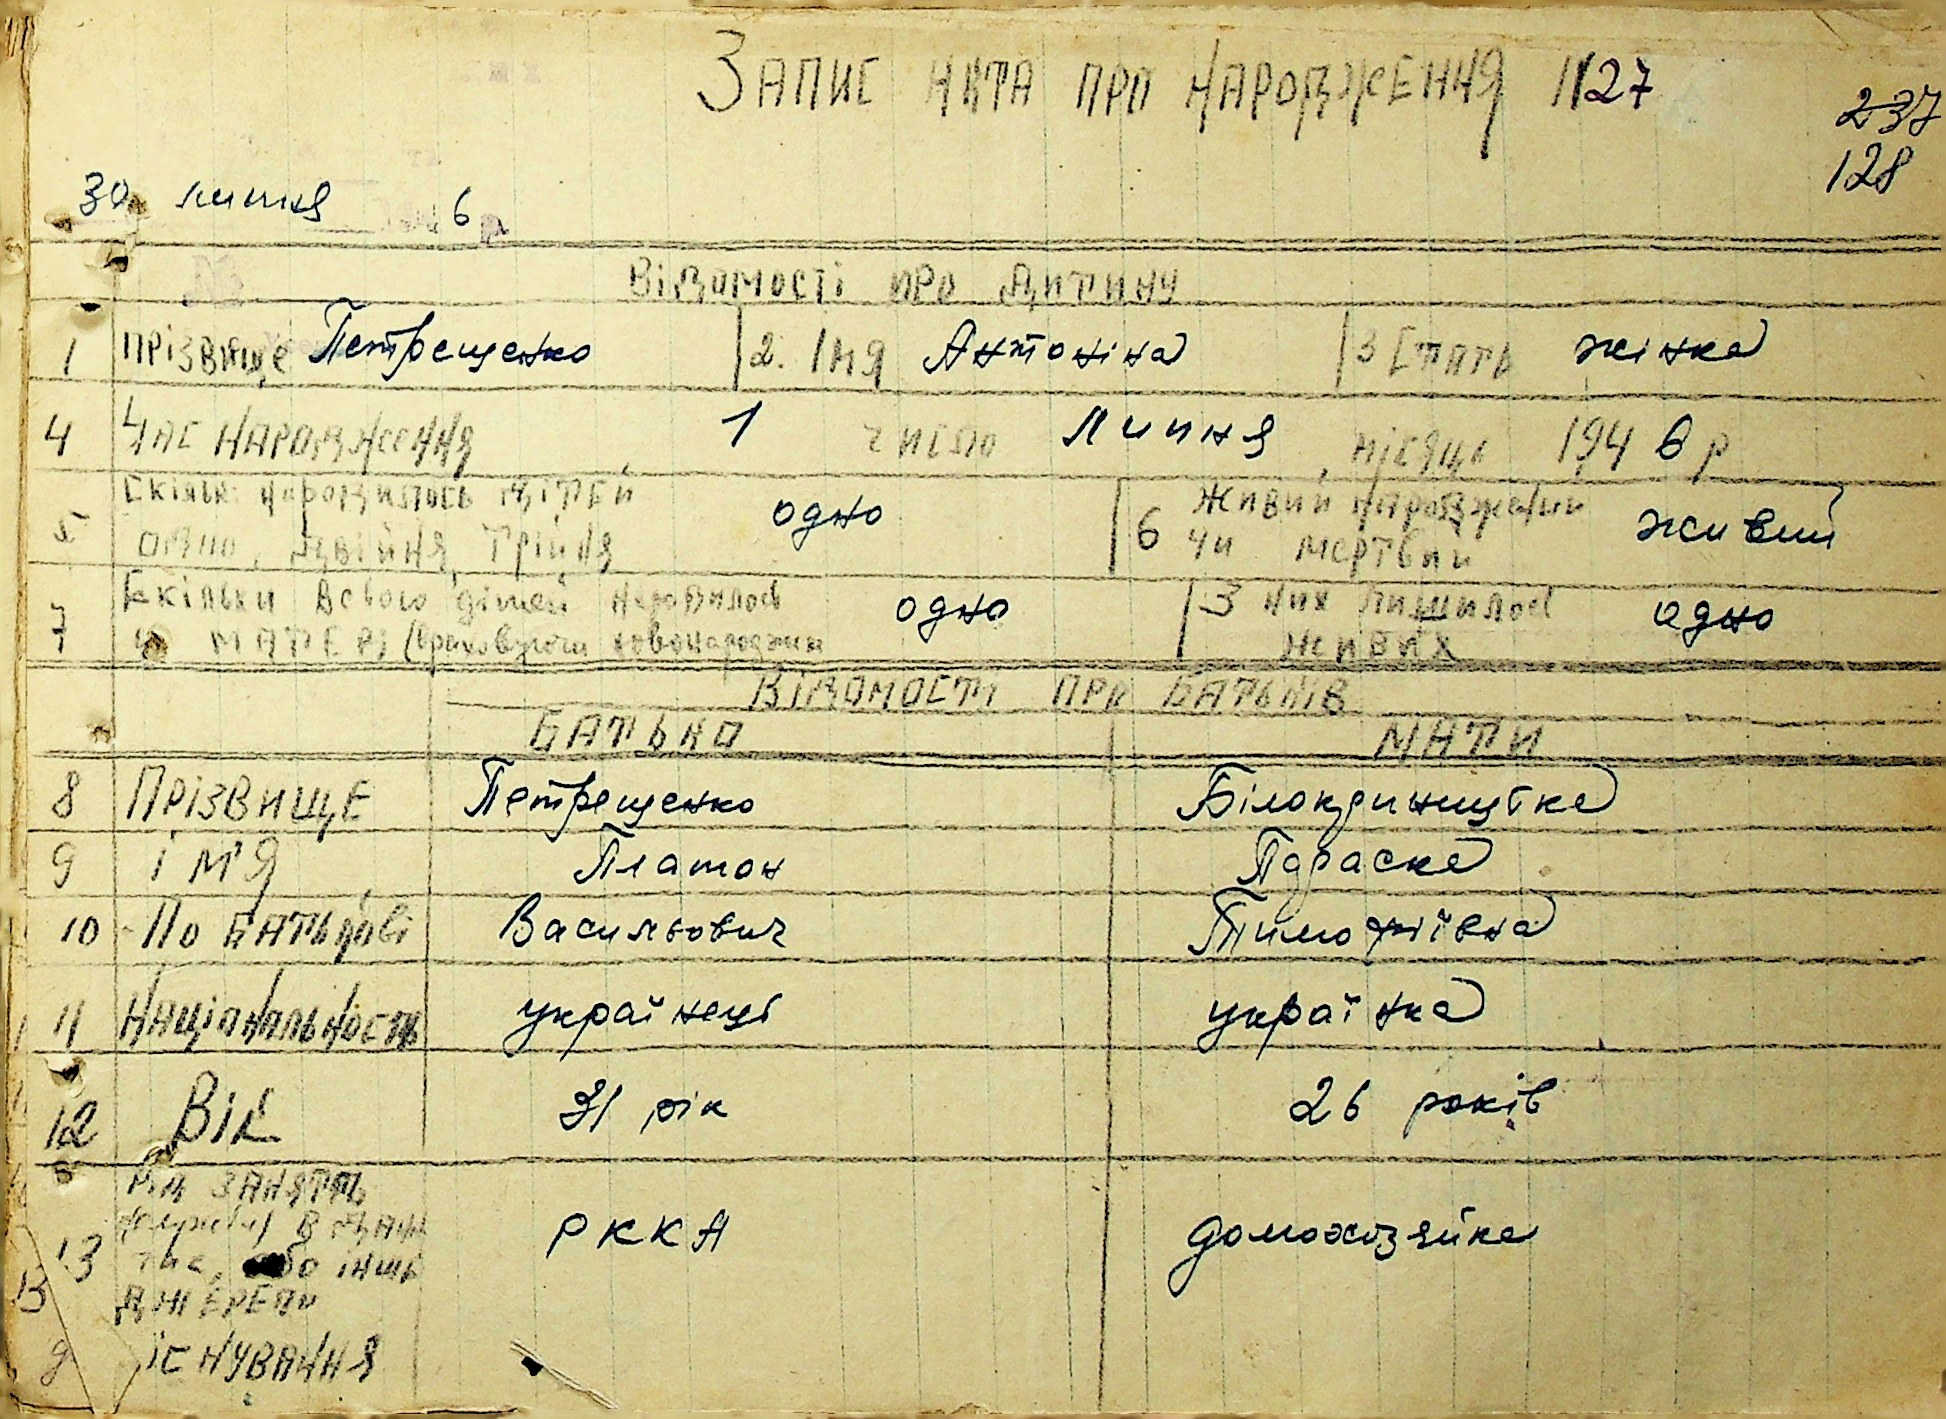 Запис акта про народження N 127
237
128
30 липня 6 р
Відомості про дитину
1 Прізвище Петрещенко 2. Імя Антоніна 3 Стать жінка
4 Час народження 1 число липня місяця 1946 р
5 Скільк народилось дітей одно 6 Живий народжений живий
одно, двійня, трійня чи мертвий
7 Скільки всього дітей народилось одно З них лишилось одно
у матері (враховуючи новонароджен живих
Відомості про батьків
Батько Мати
8 Прізвище Петрещенко Білокриницька
9 ім'я Платон Параска
10 По батькові Васильович Тимофіївна
11 Національность українець українка
12 Вік 31 рік 26 років
Рід занять
в дан
13 час, або інші РККА домохозяйка
джерело
існування